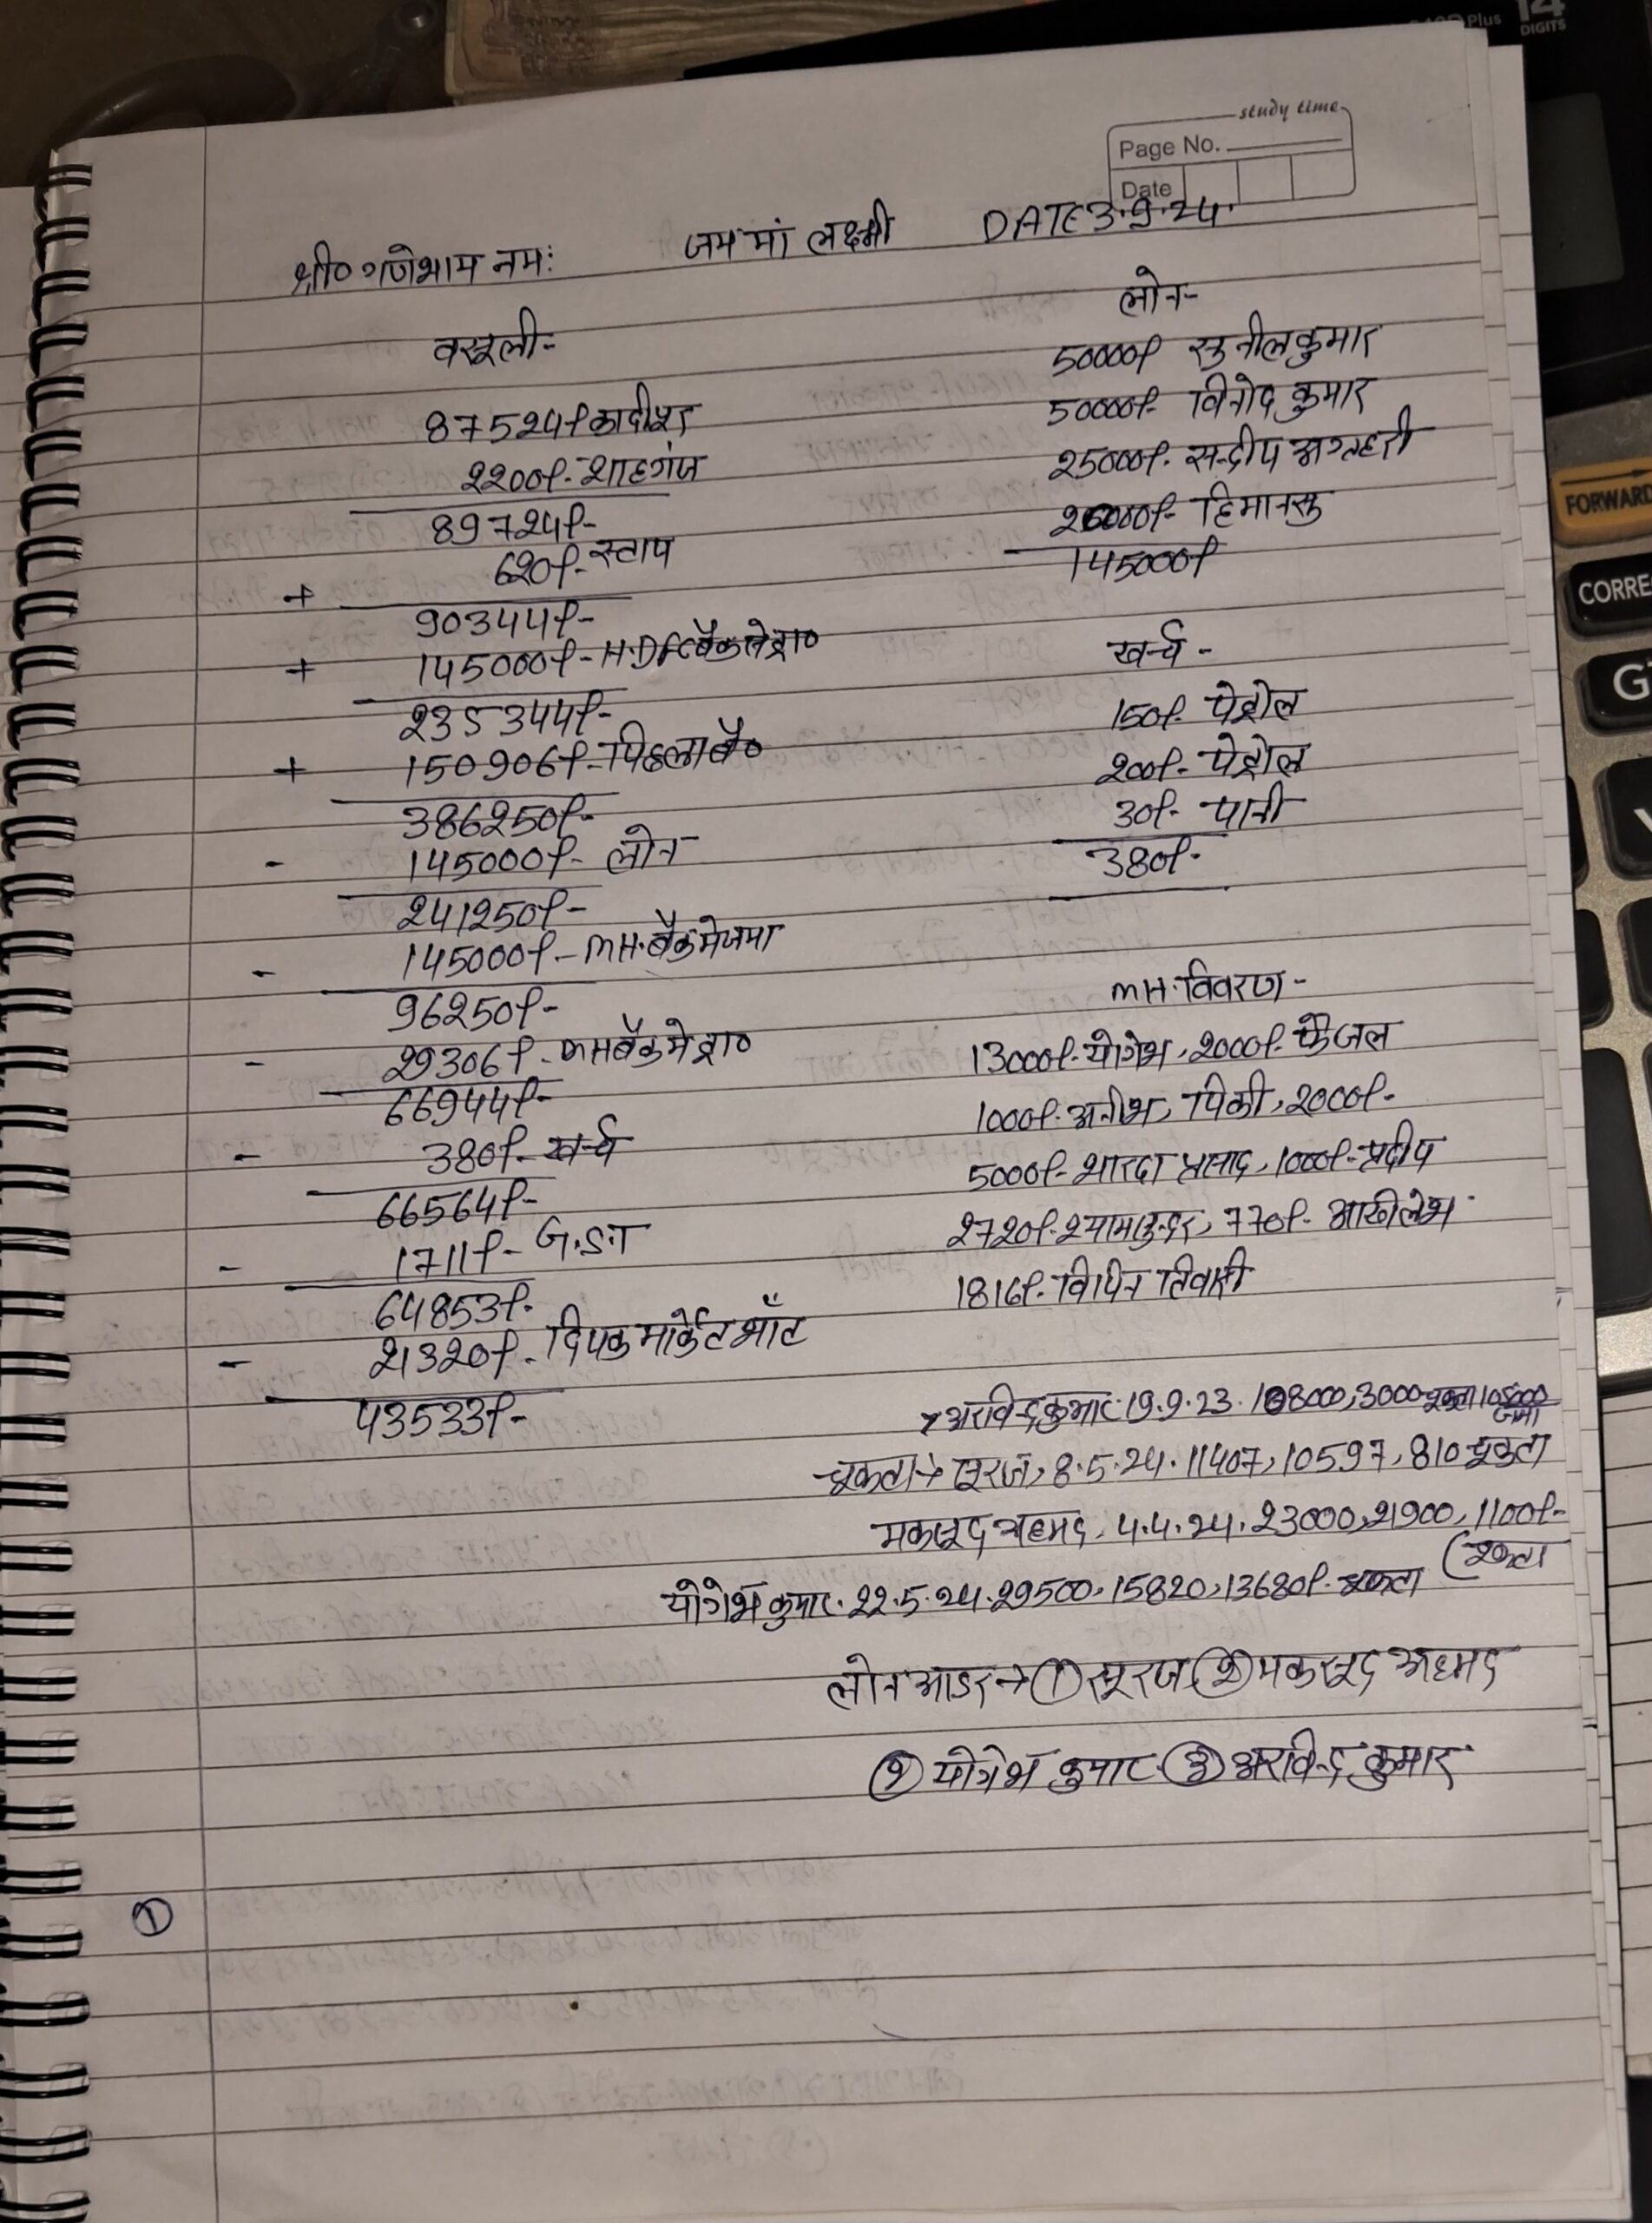 14
DIGITS
Plus
study time
Page No.
Date
श्री० गणेशाय नमः जय मां लक्ष्मी DATE 3.9.24
वसूली-
87524/- कादीपुर
2200/- शाहगंज
89724/-
620/- स्टाप
+
90344/-
+ 145000/- H.DFC बैंक से ट्रा०
235344/-
+ 150906/- पिछला बै०
386250/-
- 145000/- लोन
241250/-
- 145000/- MH. बैंक मे जमा
96250/-
- 29306/- MH बैंक मे ट्रा०
66944/-
- 380/- खर्च
66564/-
- 1711/- G.S.T
64853/-
- 21320/- दिपक मार्केट शॉट
43533/-
लोन-
50000/- सुनील कुमार
50000/- विनोद कुमार
25000/- सन्दीप अग्रहरी
20000/- हिमान्सु
145000/-
खर्च -
150/- पेट्रोल
200/- पेट्रोल
30/- पानी
380/-
MH. विवरण -
13000/- योगेश, 2000/- फैजल
1000/- अनीश, पिंकी, 2000/-
5000/- शारदा प्रसाद, 1000/- प्रदीप
2720/- श्यामसुन्दर, 770/- आखीलेश
1816/- विपिन तिवारी
अरविन्द कुमार 19.9.23. 108000, 3000 चुकता 105000 जमा
चुकता → सूरज, 8.5.24. 11407, 10597, 810 चुकता
मकसूद अहमद, 4.4.24. 23000, 21900, 1100/-
(चुकता
योगेश कुमार. 22.5.24. 29500, 15820, 13680/- चुकता
लोन आडर → ① सूरज ② मकसूद अहमद
② योगेश कुमार ③ अरविन्द कुमार
①
FORWARD
CORRE
G